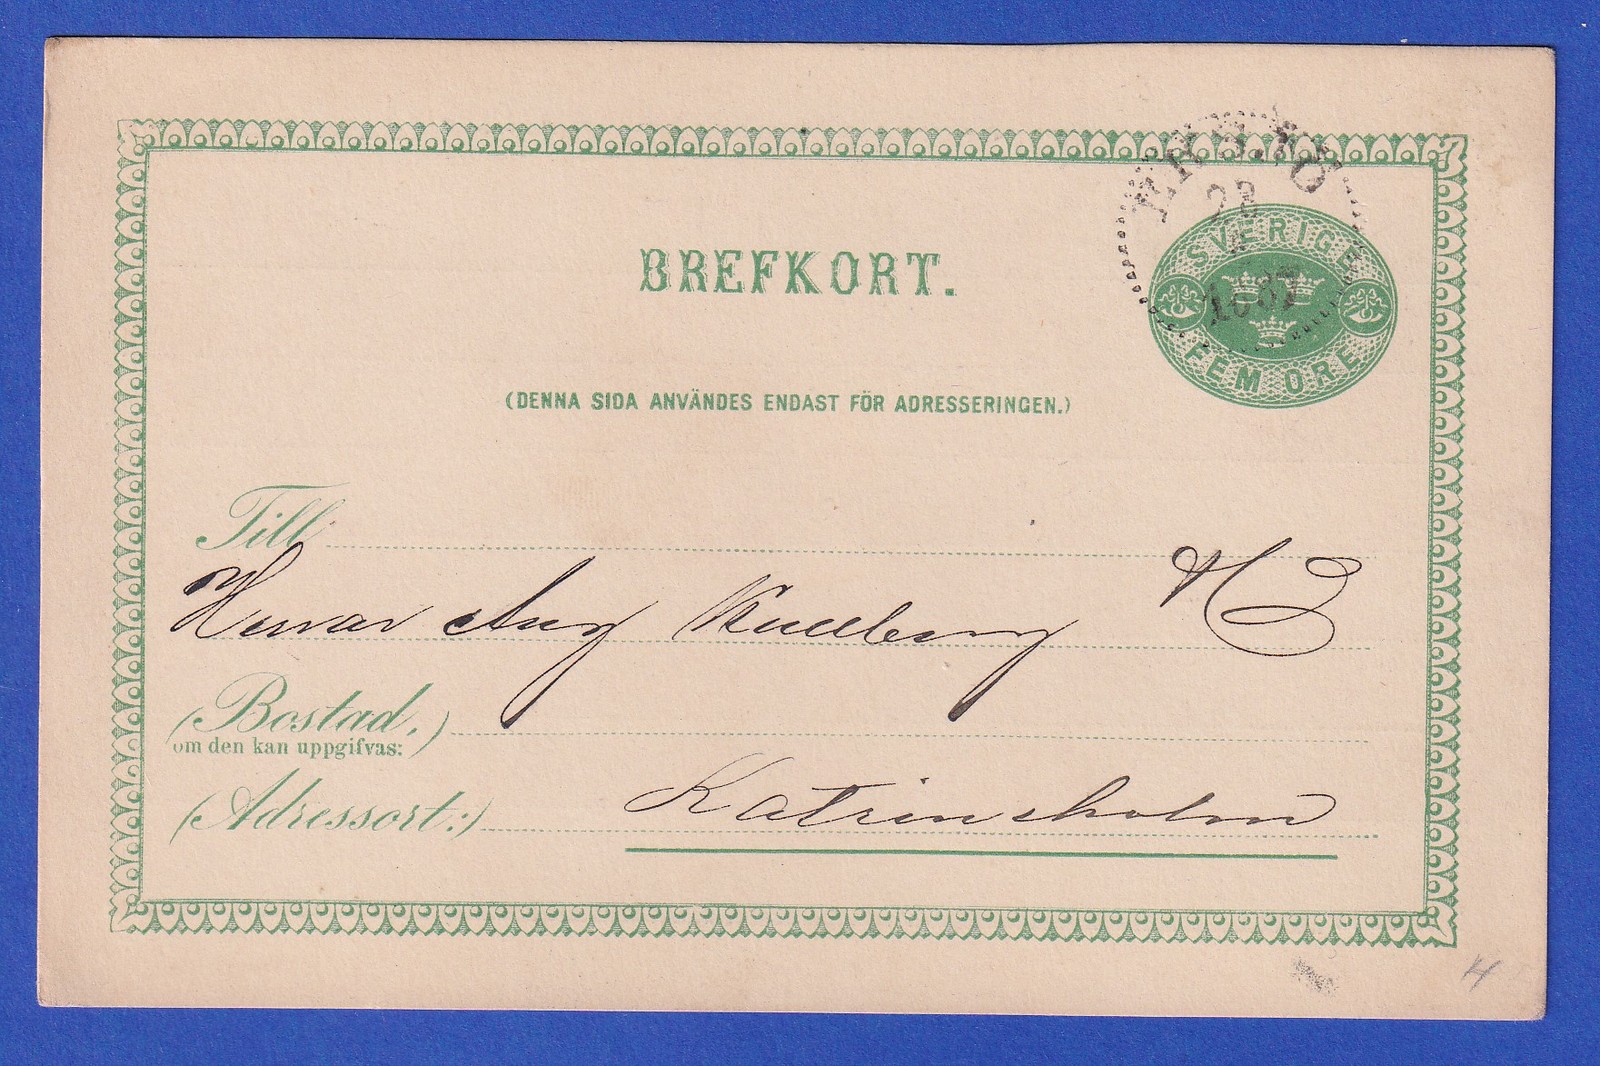 23
1887
SVERIGE
FEM ÖRE
BREFKORT.
(DENNA SIDA ANVÄNDES ENDAST FÖR ADRESSERINGEN.)
Till
Herrar Aug
(Bostad,)
om den kan uppgifvas:
(Adressort:) Katrinsholm
4